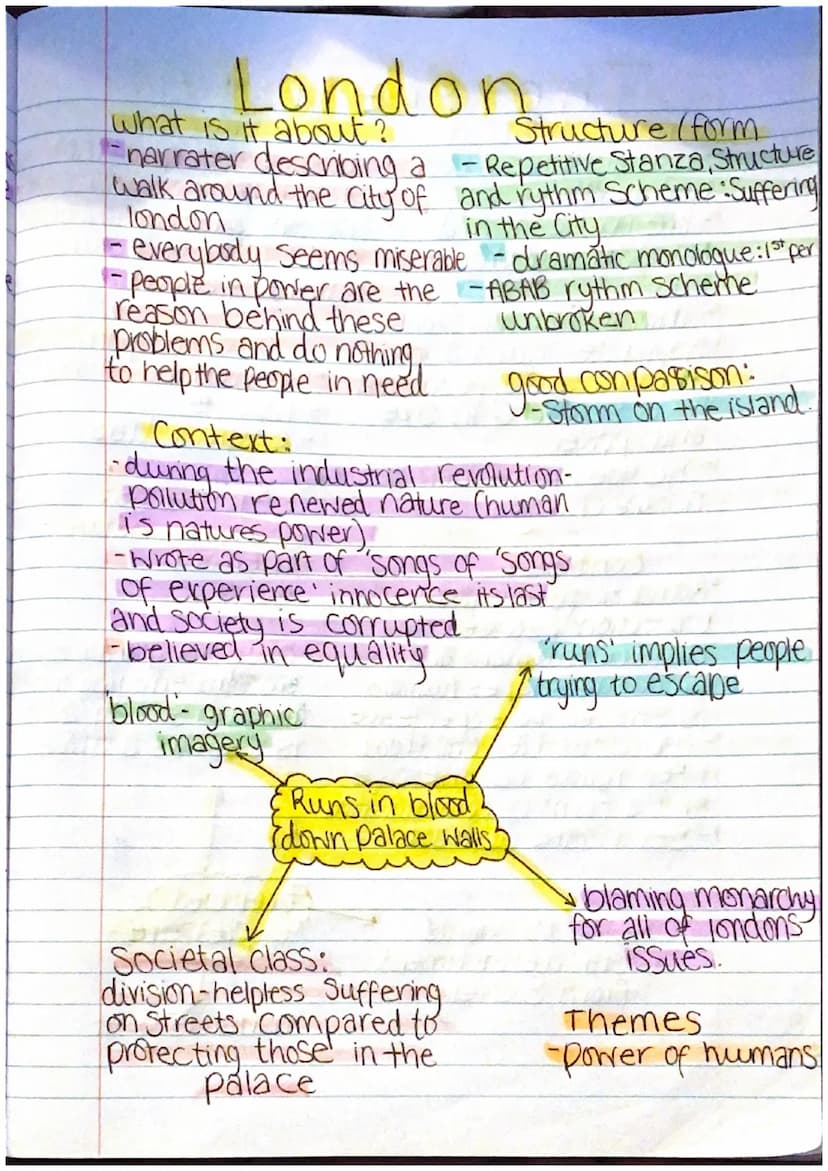 London
What is it about?
- narrater describing a
walk around the city of
london
- everybody seems miserable
- people in power are the
reason behind these
problems and do nothing
to help the people in need
Structure / form
- Repetitive Stanza, Structure
and rythm Scheme : Suffering
in the City
- dramatic monologue: 1st per
- ABAB rythm scheme
unbroken
good conparison:
- Storm on the island.
Context:
- during the industrial revolution-
pollution renewed nature (human
is natures power)
- wrote as part of 'songs of 'songs
of experience' innocence its last
and society is corrupted
- believed in equality
'runs' implies people
trying to escape
'blood' - graphic
imagery
Runs in blood
down Palace walls
blaming monarchy
for all of londons
issues.
Societal class:
division-helpless suffering
on streets compared to
protecting those in the
palace
Themes
- power of humans